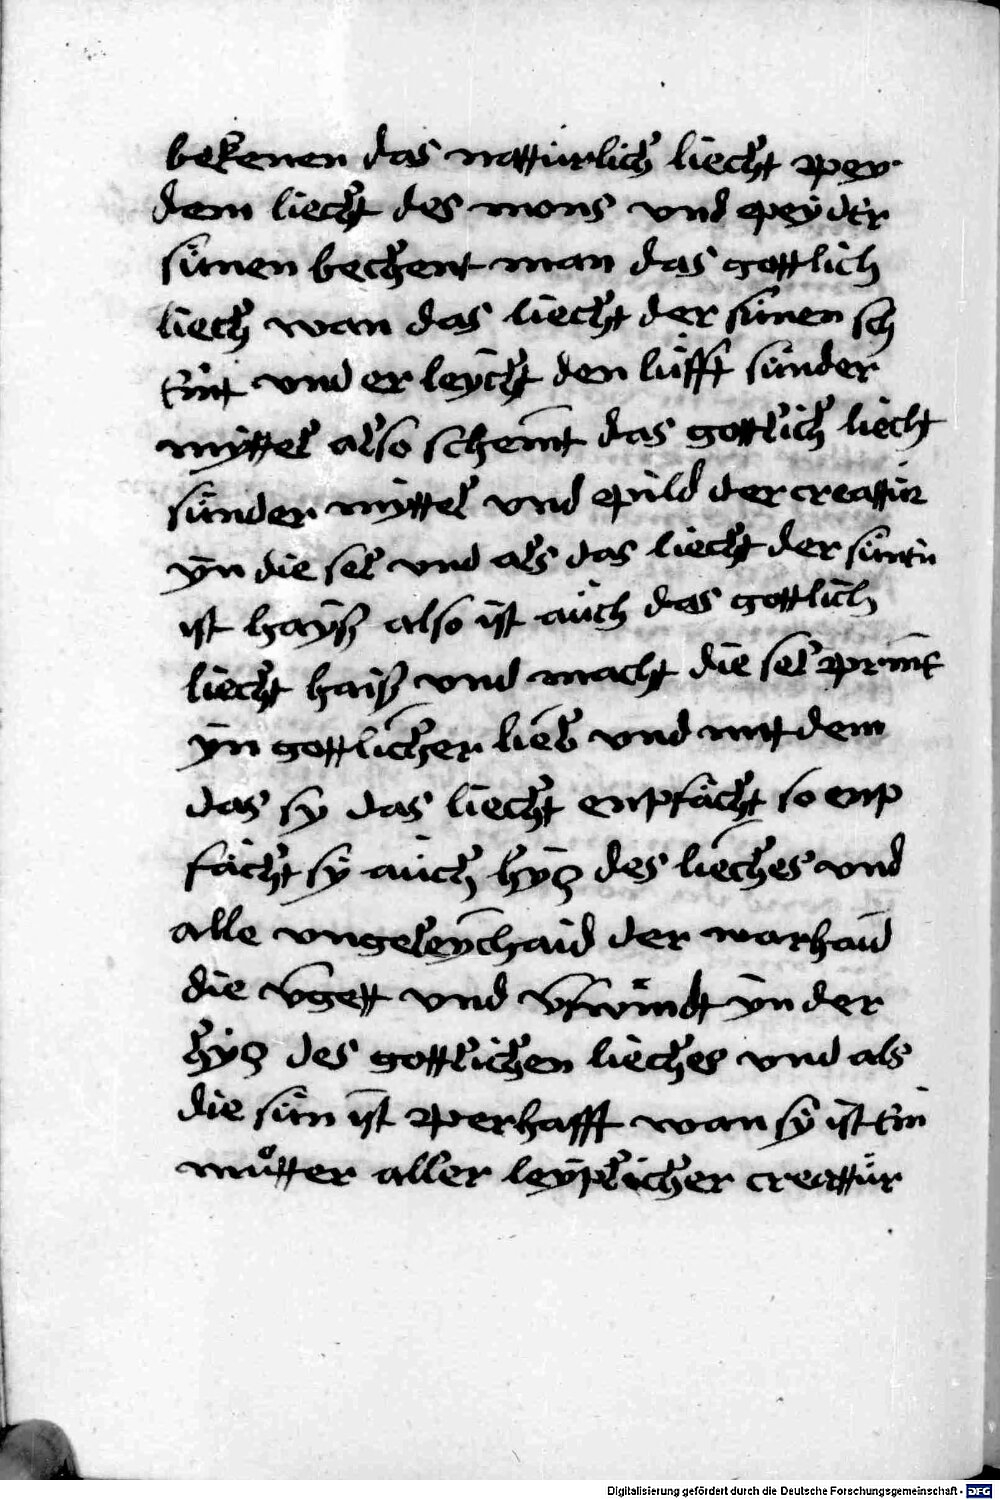 bekenen das nattürlich liecht pey
dem liecht des mons vnd pey der
sünen bechent man das gottlich
liech wan das liecht der sünen sch
eint vnd er leycht den lüfft sunder
myttel also scheint das gottlich liecht
sunder myttel vnd pild der creattur
yn die sel vnd als das liecht der sunen
ist hayß also ist auch das gottlich
liecht haiß vnd macht die sel prinent
yn gottlicher lieb vnd mit dem
das sy das liecht enpfächt so enp
fächt sy auch hycz des liechtes vnd
alle vngeleychaid der warhaid
die v̄gett vnd v̄swindt yn der
hycz des gottlichen liechtes vnd als
die sün ist perhafft wan sy ist ein
můtter aller leyplicher creattür
Digitalisierung gefördert durch die Deutsche Forschungsgemeinschaft - DFG